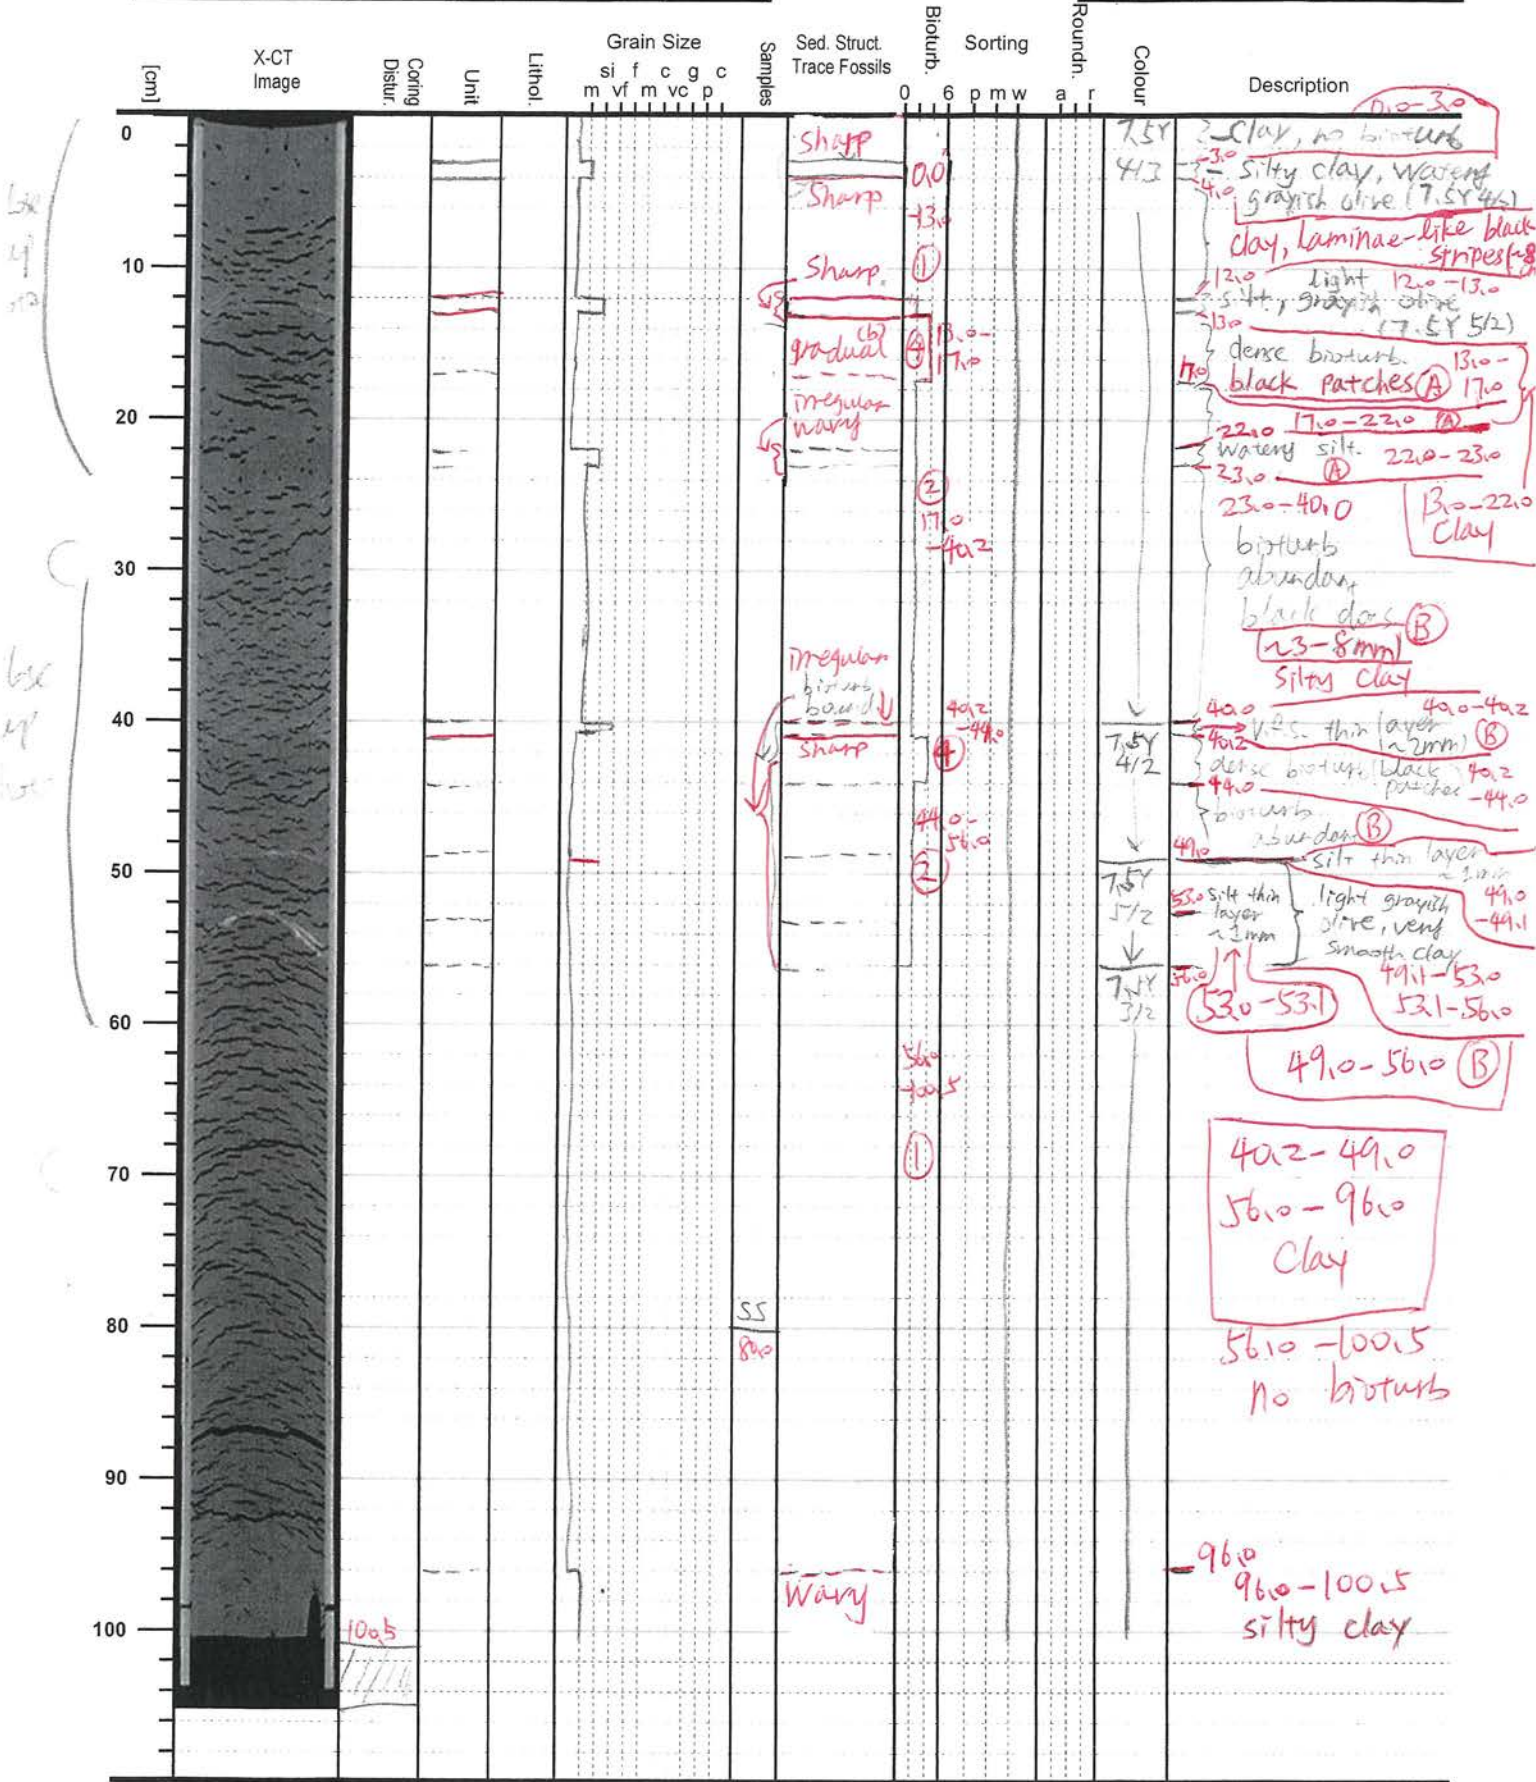 [cm]
X-CT
Image
Coring
Distur.
Unit
Lithol.
Grain Size
si f c g c
m vf m vc p
Samples
Sed. Struct.
Trace Fossils
Bioturb.
0 6
Sorting
p m w
Roundn.
a r
Colour
Description
0
10
20
30
40
50
60
70
80
90
100
100.5
SS
80.0
Sharp
Sharp
Sharp
gradual (b)
irregular
wavy
irregular
bioturb
bound
Sharp
Wavy
0.0
-13.0
1
4
13.0-
17.0
2
17.0
-40.2
40.2
-44.0
4
44.0-
56.0
2
56.0
-100.5
1
7.5Y
4/3
7.5Y
4/2
7.5Y
5/2
7.5Y
3/2
0.0-3.0
Clay, no bioturb
3.0
silty clay, watery
4.0
grayish olive (7.5Y 4/2)
clay, laminae-like black
stripes
12.0
light 12.0-13.0
silt, grayish olive
13.0
(7.5Y 5/2)
dense bioturb. 13.0-
17.0
black patches A 17.0
17.0-22.0 A
22.0
watery silt. 22.0-23.0
23.0 A
23.0-40.0
13.0-22.0
Clay
bioturb
abundan
black dots B
(~3-8mm)
Silty clay
40.0 40.0-40.2
v.f.s. thin layer
40.2 (~2mm) B
dense bioturb (black 40.2
44.0 patches -44.0
bioturb
abundan B
49.0
silt thin layer
~1mm
49.0
-49.1
53.0 silt thin
layer
~1mm
light grayish
olive, very
smooth clay
56.0
49.1-53.0
53.0-53.1
53.1-56.0
49.0-56.0 B
40.2-49.0
56.0-96.0
Clay
56.0-100.5
no bioturb
96.0
96.0-100.5
silty clay